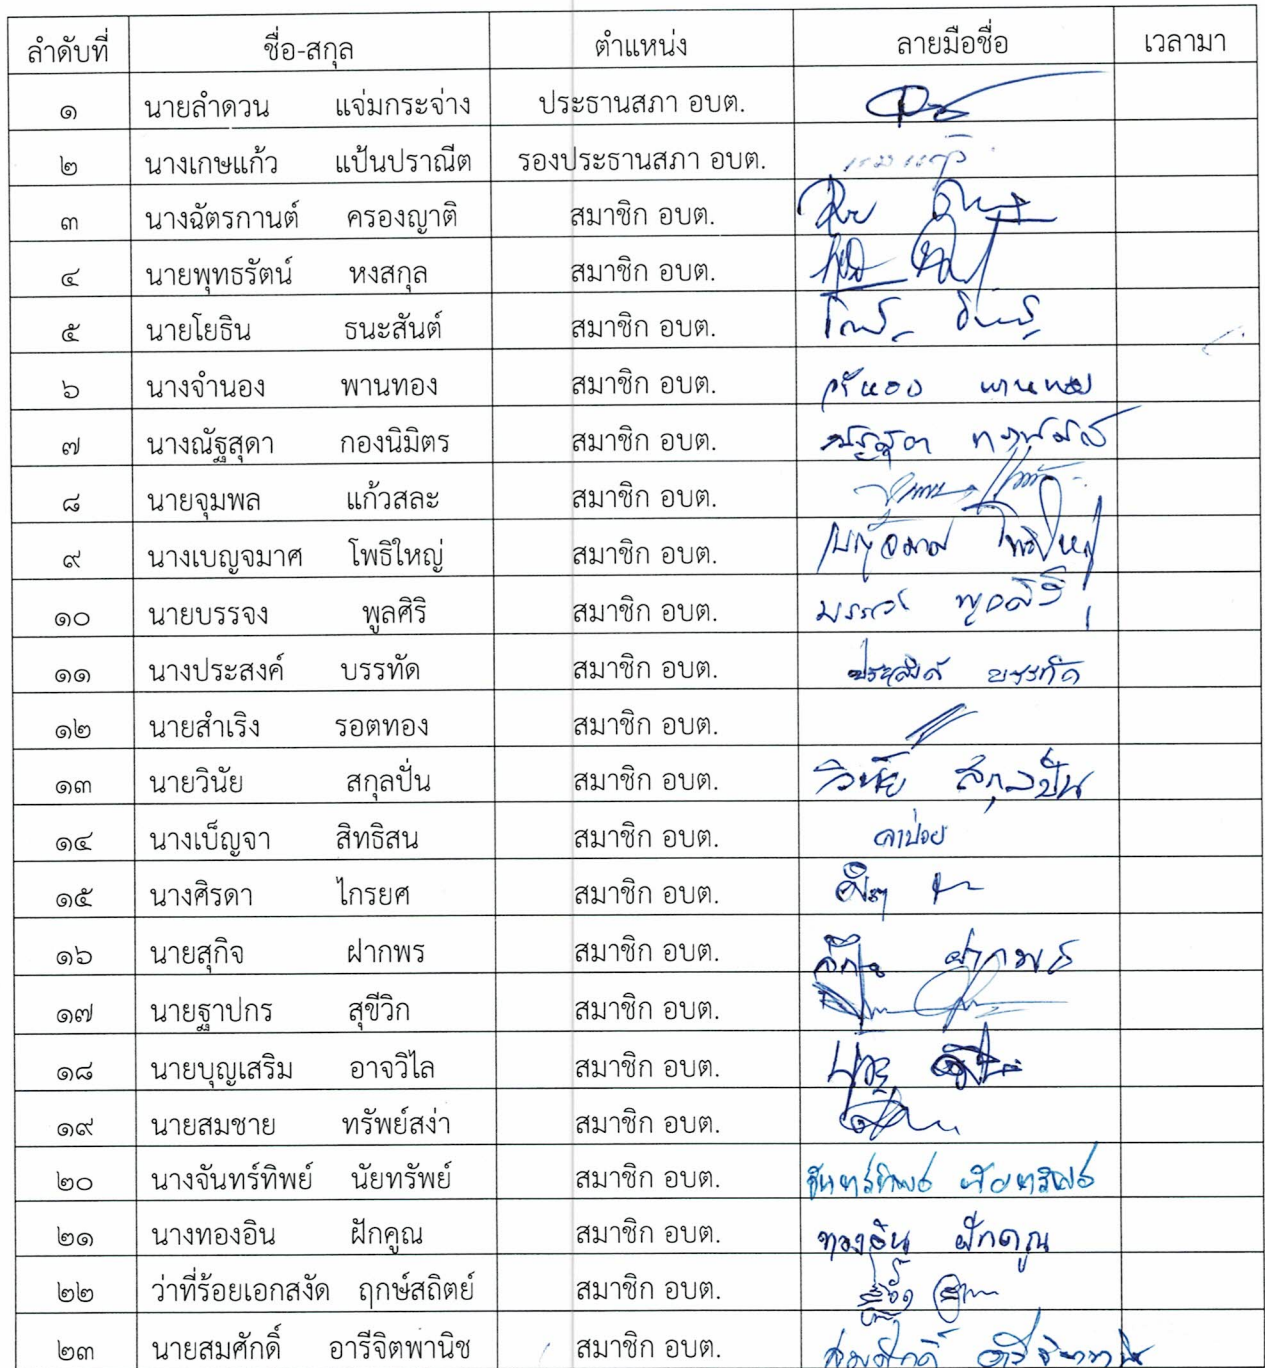 ลำดับที่ ชื่อ-สกุล ตำแหน่ง ลายมือชื่อ เวลามา
๑ นายลำดวน แจ่มกระจ่าง ประธานสภา อบต.
๒ นางเกษแก้ว แป้นปราณีต รองประธานสภา อบต.
๓ นางฉัตรกานต์ ครองญาติ สมาชิก อบต.
๔ นายพุทธรัตน์ หงสกุล สมาชิก อบต.
๕ นายโยธิน ธนะสันต์ สมาชิก อบต.
๖ นางจำนอง พานทอง สมาชิก อบต. จำนอง พานทอง
๗ นางณัฐสุดา กองนิมิตร สมาชิก อบต. ณัฐสุดา
๘ นายจุมพล แก้วสละ สมาชิก อบต.
๙ นางเบญจมาศ โพธิใหญ่ สมาชิก อบต. เบญจมาศ โพธิใหญ่
๑๐ นายบรรจง พูลศิริ สมาชิก อบต. บรรจง พูลศิริ
๑๑ นางประสงค์ บรรทัด สมาชิก อบต. ประสงค์ บรรทัด
๑๒ นายสำเริง รอตทอง สมาชิก อบต.
๑๓ นายวินัย สกุลปั่น สมาชิก อบต. วินัย สกุลปั่น
๑๔ นางเบ็ญจา สิทธิสน สมาชิก อบต. ลาป่วย
๑๕ นางศิรดา ไกรยศ สมาชิก อบต.
๑๖ นายสุกิจ ฝากพร สมาชิก อบต. สุกิจ ฝากพร
๑๗ นายฐาปกร สุขีวิก สมาชิก อบต.
๑๘ นายบุญเสริม อาจวิไล สมาชิก อบต.
๑๙ นายสมชาย ทรัพย์สง่า สมาชิก อบต.
๒๐ นางจันทร์ทิพย์ นัยทรัพย์ สมาชิก อบต. จันทร์ทิพย์ นัยทรัพย์
๒๑ นางทองอิน ฝักคูณ สมาชิก อบต. ทองอิน ฝักคูณ
๒๒ ว่าที่ร้อยเอกสงัด ฤกษ์สถิตย์ สมาชิก อบต.
๒๓ นายสมศักดิ์ อารีจิตพานิช สมาชิก อบต. สมศักดิ์ อารีจิตพานิช